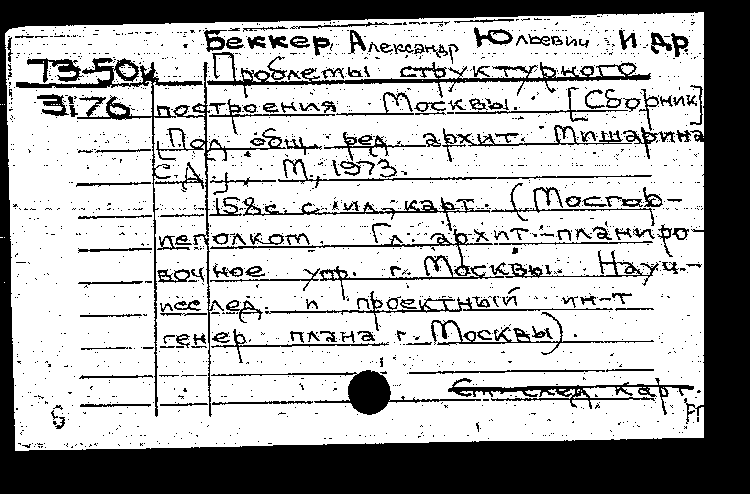 Беккер, Александр Юльевич и др
73-50и Проблемы структурного
3176 построения Москвы. [Сборник]
[Под общ. ред. архит. Мишарина
С.А.], М., 1973.
158 с. с ил., карт. (Мосгор-
исполком. Гл. архит.-планиро-
вочное упр. г. Москвы. Науч.-
исслед. и проектный ин-т
генер. плана г. Москвы).
См. след. карт.